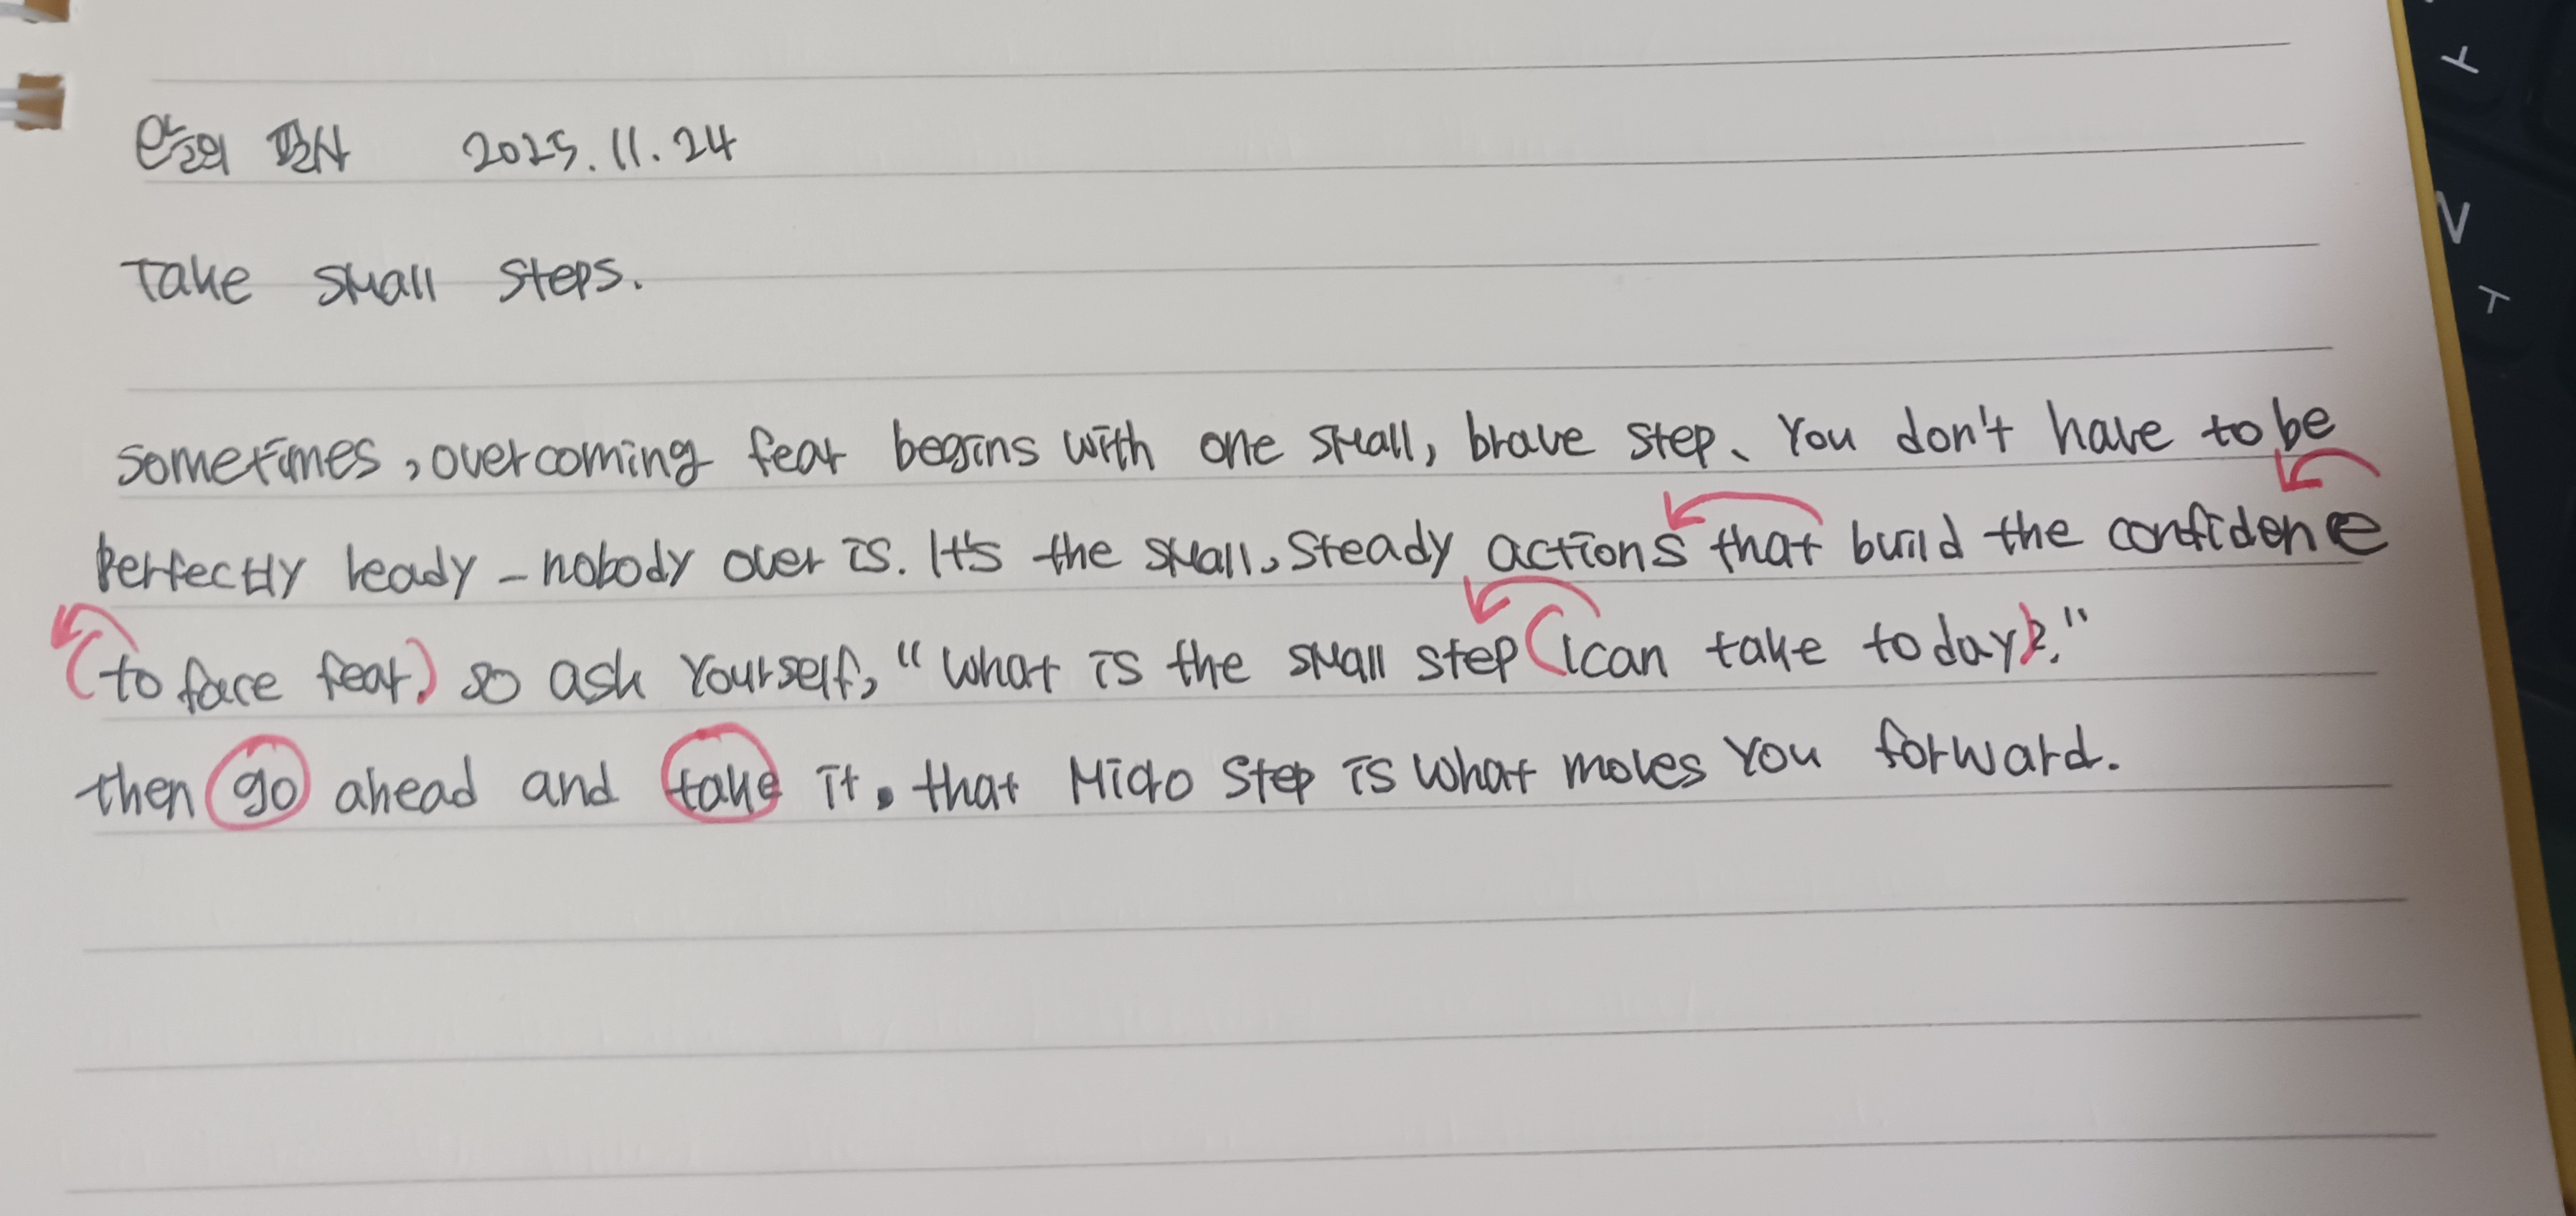 오늘의 필사 2025.11.24
Take small steps.
sometimes, overcoming fear begins with one small, brave step. You don't have to be
perfectly ready - nobody over is. It's the small, steady actions that build the confidence
(to face fear.) so ask yourself, "what is the small step (I can take today)?."
then go ahead and take it. that Micro step is what moves you forward.